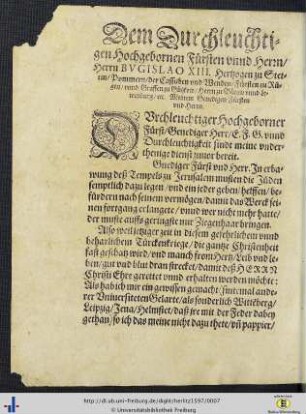 Dem Durchleuchti-
gen Hochgebornen Fürsten vnnd Herrn/
Herrn BVGISLAO XIII. Hertzogen zu Stet-
tin/ Pommern/ der Cassuben vnd Wenden/ Fürsten zu Rü-
gen/ vnnd Graffen zu Gützkow/ Herrn
Meinem Genedigen Fürsten
vnd Herrn.
DVrchleuchtiger Hochgeborner
Fürst/ Genediger Herr/ E. F. G. vnnd
Durchleuchtigkeit sindt meine vnder-
thenige dienst zuuor bereit.
Genediger Fürst vnd Herr. In erba-
wung deß Tempels zu Jerusalem musten die Jüden
semptlich dazu legen/ vnd ein jeder geben/ helffen/ be-
fürdern nach seinem vermögen/ damit das Werck sei-
nen fortgang erlangete/ vnnd wer nicht mehr hatte/
der muste auffs geringste nur Ziegenhaar bringen.
Also weil jetziger zeit in diesem gefehrlichem vnnd
beharrlichem Türckenkriege/ die gantze Christenheit
fast geschatzt wird/ vnd manch from Hertz/ Leib vnd le-
ben/ gut vnd blut dran strecket/ damit deß HERRN
Christi Ehre gerettet vnnd erhalten werden möchte:
Als hab ich mir ein gewissen gemacht/ sintemal ande-
rer Vniuersiteten Gelarte/ als sonderlich Witteberg/
Leipzig/ Jena/ Helmstet/ daß jre mit der Feder dabey
gethan/ so ich das meine nicht dazu thete/ vñ pappier/
http://dl.ub.uni-freiburg.de/diglit/herlitz1597/0007
© Universitätsbibliothek Freiburg